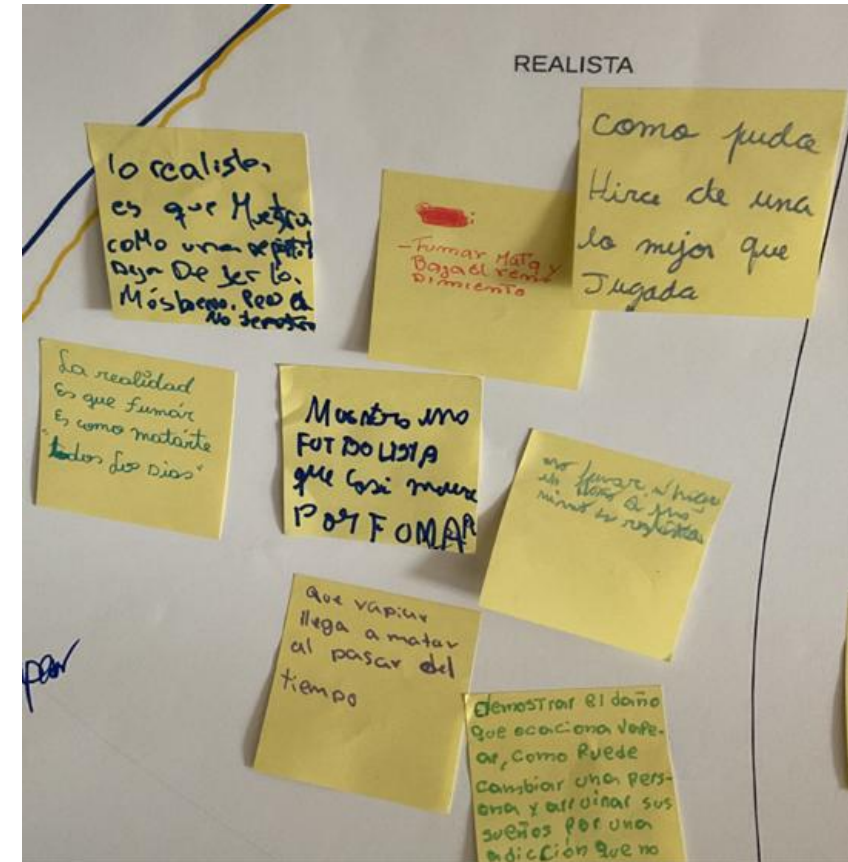 REALISTA
lo realista,
es que Muestra
como una
Deja De ser lo
Más bueno. Pero el
No
- Fumar Mata y
Baja el ren
Dimiento
como pudce
Hirce de una
lo mejor que
Jugada
La realidad
Es que fumar
Es como matarte
"todos los Dias"
Muestro uno
FUTBOLISTA
que Casi muere
POR FOMAR
no fumar
que vapiar
llega a matar
al pasar del
tiempo
demostrar el daño
que ocaciona vape-
ar, como Puede
cambiar una pers-
ona y arruinar sus
sueños por una
adicción que no